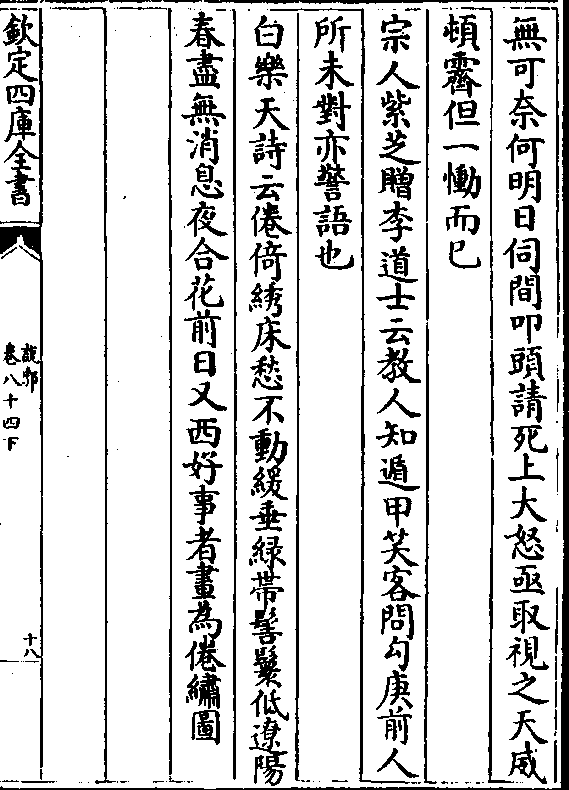 無可奈何明日伺間叩頭請死上大怒亟取視之天威
頓霽但一慟而已
宗人紫芝贈李道士云教人知遁甲笑客問勾庚前人
所未對亦警語也
白樂天詩云倦倚綉床愁不動緩垂緑帯髻鬟低遼陽
春盡無消息夜合花前日又西好事者畫為倦繡圖
欽定四庫全書
說郛
卷八十四下
十八